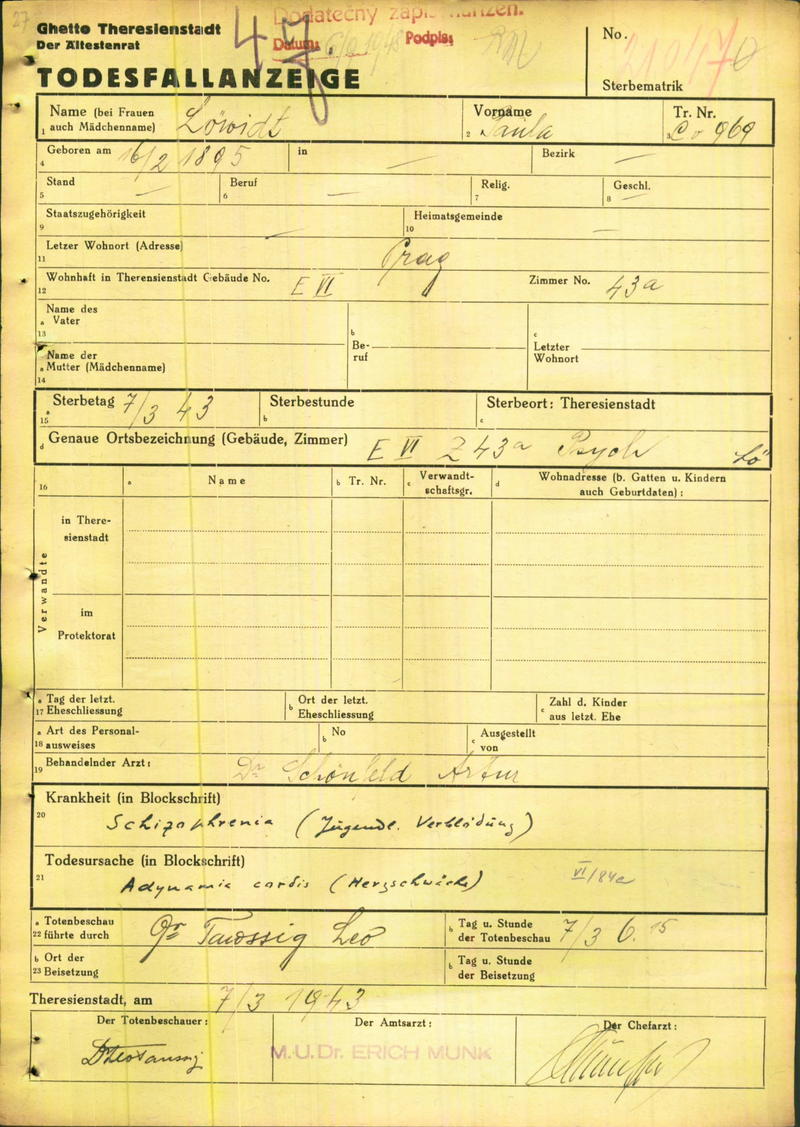 27
Ghetto Theresienstadt
Der Ältestenrat
TODESFALLANZEIGE
47.
Dodatečný zápis
Datum: Podpis:
No.
Sterbematrik
Name (bei Frauen auch Mädchenname) Löwidt
1
Vorname Paula
2
Tr. Nr. Cv 969
3
Geboren am 16/2 1895 in — Bezirk —
4
Stand — Beruf — Relig. Geschl. —
5 6 7 8
Staatszugehörigkeit — Heimatsgemeinde —
9 10
Letzer Wohnort (Adresse) Prag
11
Wohnhaft in Therensienstadt Gebäude No. E VI Zimmer No. 43a
12
Name des Vater
a
13
b Beruf
c Letzter Wohnort
Name der Mutter (Mädchenname)
a
14
Sterbetag 7/3 43 Sterbestunde Sterbeort: Theresienstadt
a 15 b c
d Genaue Ortsbezeichnung (Gebäude, Zimmer) E VI Z 43a Psych Lö
16 a Name b Tr. Nr. c Verwandtschaftsgr. d Wohnadresse (b. Gatten u. Kindern auch Geburtdaten):
Verwandte
in Theresienstadt
im Protektorat
a 17 Tag der letzt. Eheschliessung b Ort der letzt. Eheschliessung c Zahl d. Kinder aus letzt. Ehe
a 18 Art des Personalausweises b No c Ausgestellt von
19 Behandelnder Arzt: Dr Schönfeld Artur
Krankheit (in Blockschrift)
20 Schizophrenia (Jugendl. Verblödung)
Todesursache (in Blockschrift)
21 Adynamia cordis (Herzschwäche) VI/84a
a 22 Totenbeschau führte durch Dr Taussig Leo b Tag u. Stunde der Totenbeschau 7/3 6.15
b 23 Ort der Beisetzung b Tag u. Stunde der Beisetzung
Theresienstadt, am 7/3 1943
Der Totenbeschauer: Der Amtsarzt: Der Chefarzt:
DrLeoTaussig M.U.Dr. ERICH MUNK